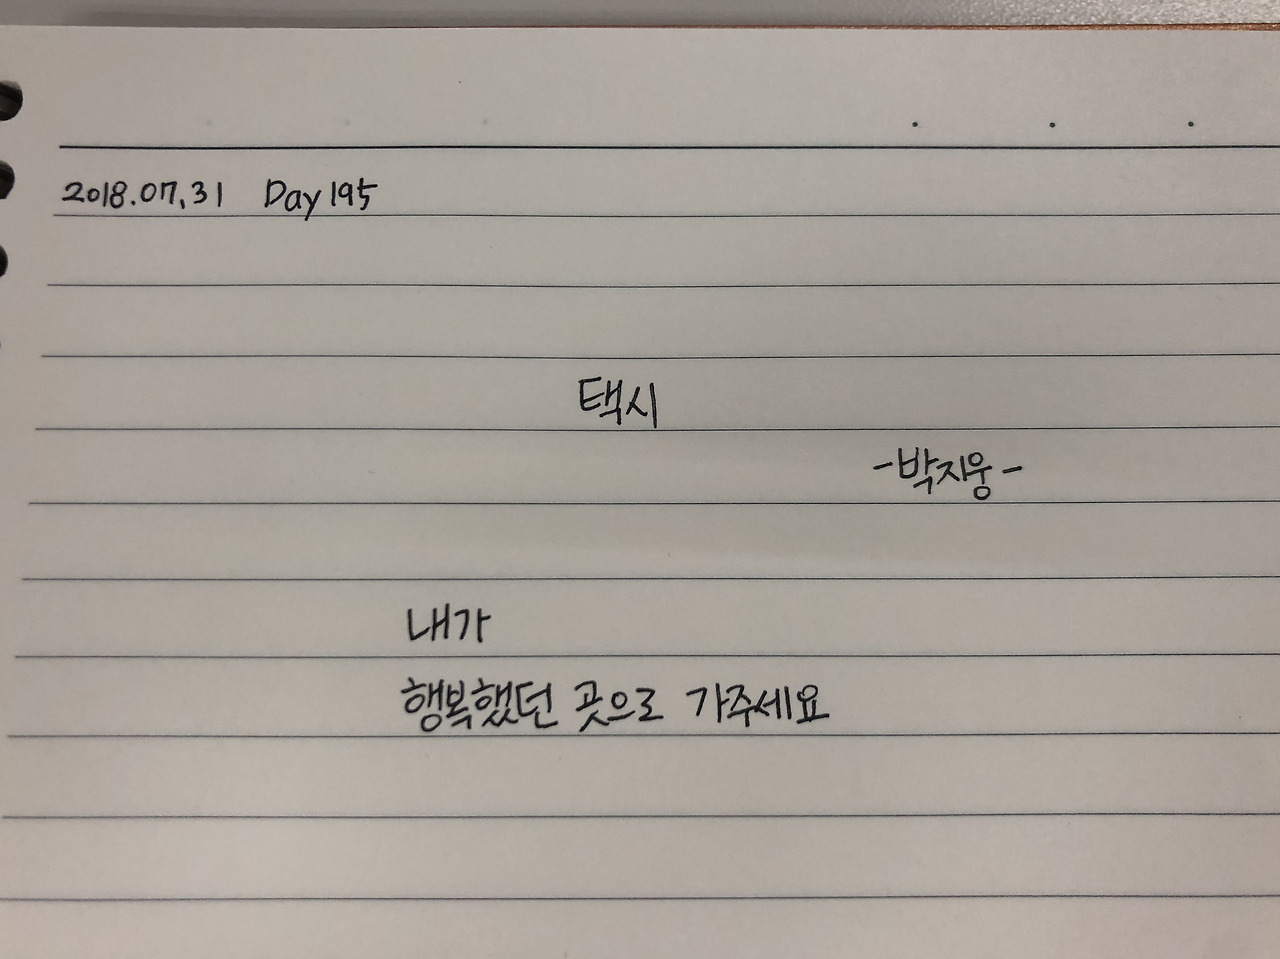 2018.07.31 Day 195
택시
-박지웅-
내가
행복했던 곳으로 가주세요